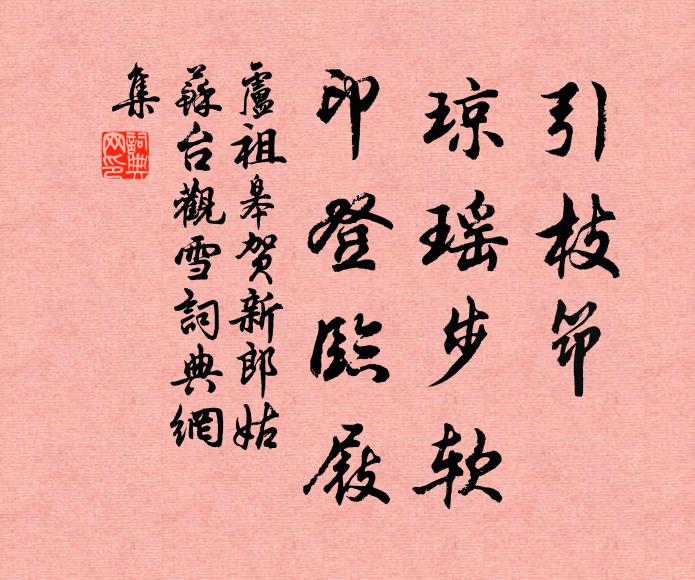 引枝筇
琼瑶步软
印登臨屐
盧祖皋贺新郎姑
蘇台觀雪詞典網
集
詞典
网印